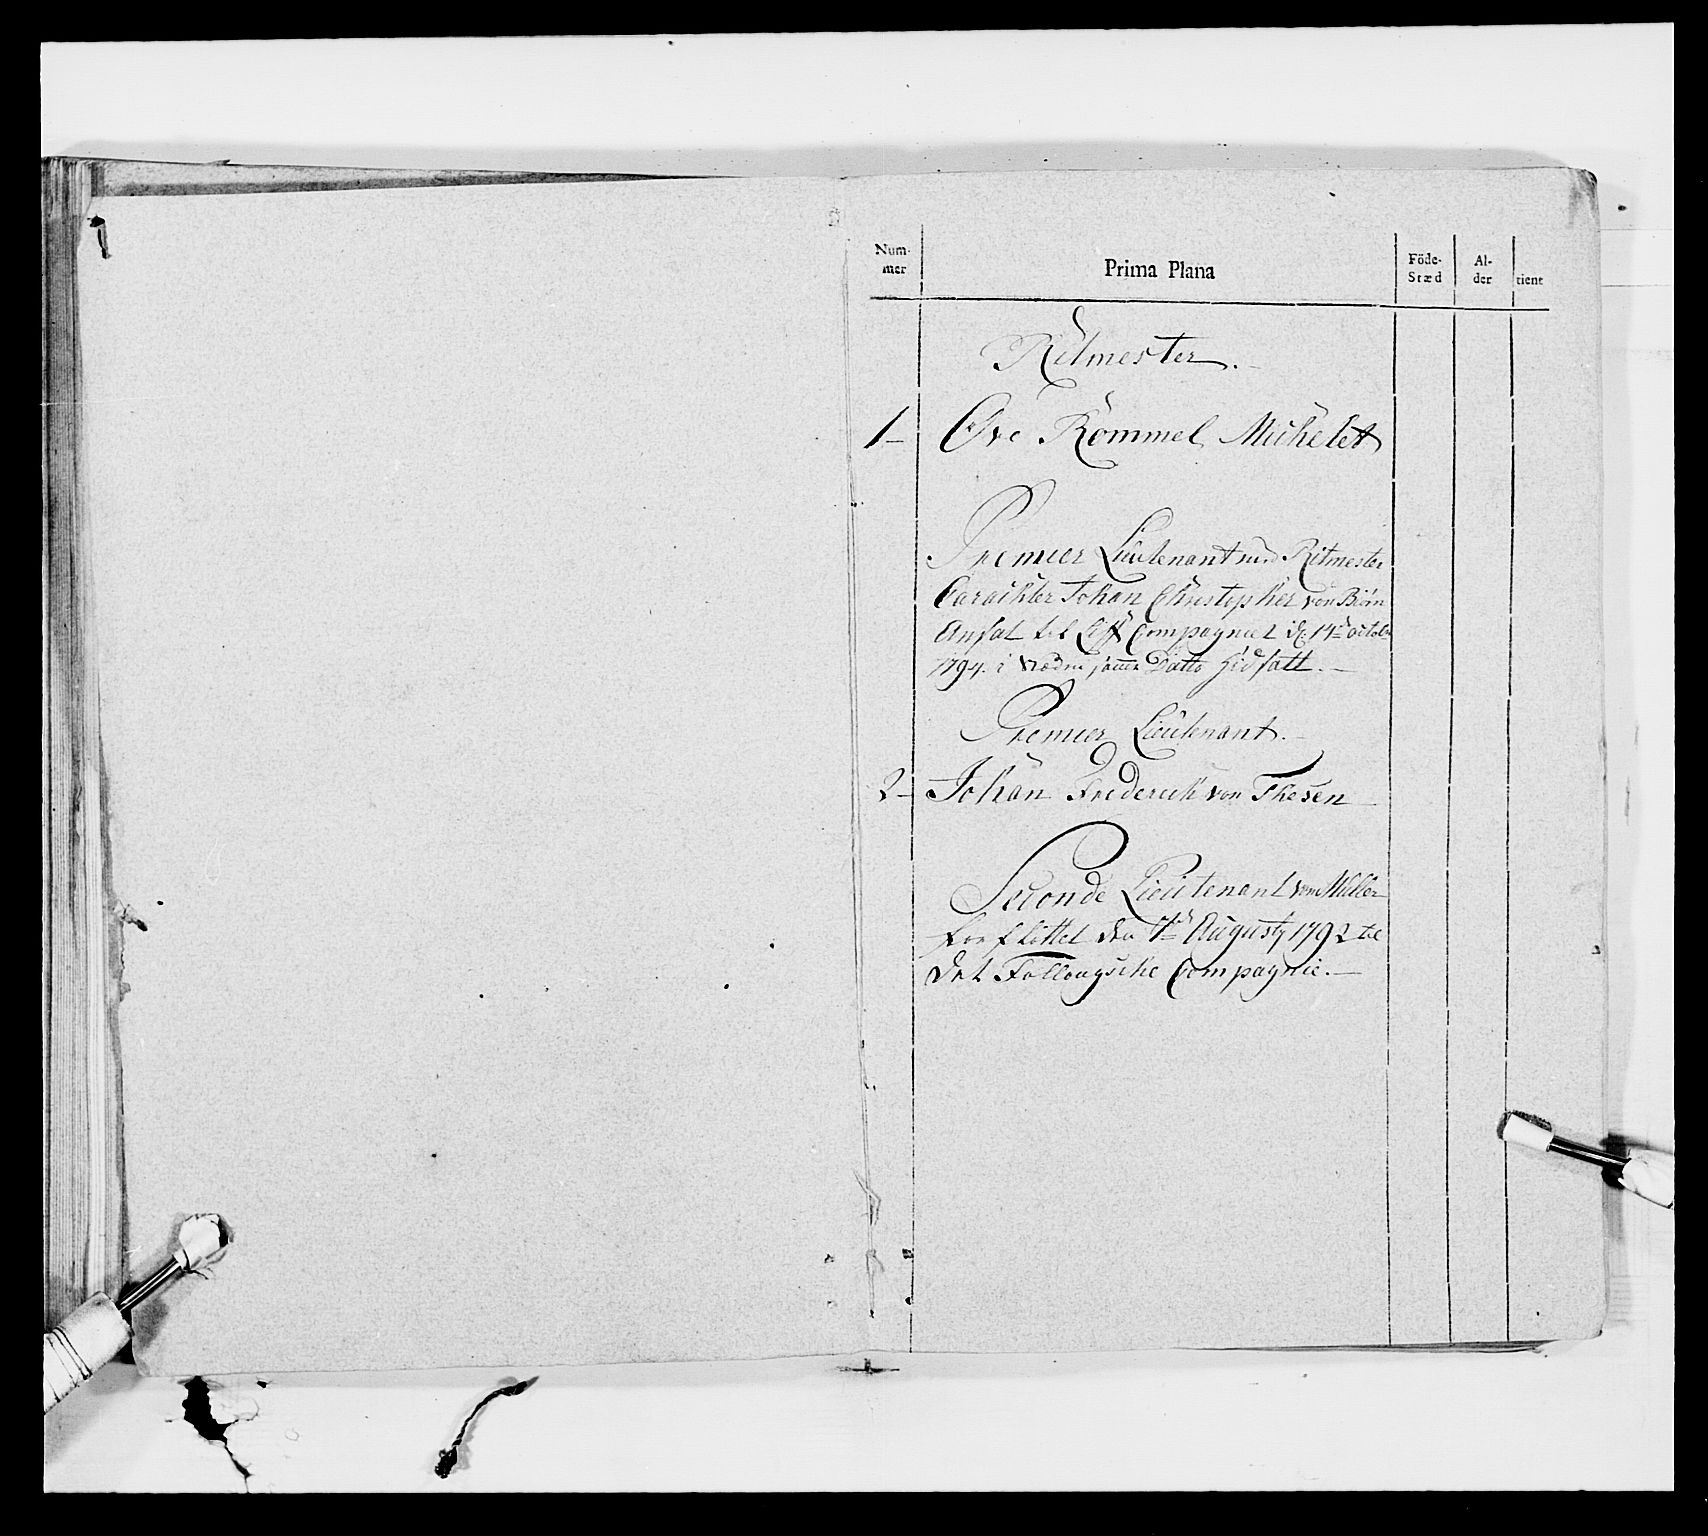 Num-
mer
Prima Plana
Föde-
Stæd
Al-
der
tient
Ritmester.
1 Ove Römmel Michelet
Premier Lieutenant med Ritmester
Carackter Johan Christopher von Biörn
Ansat til Liff Compagniet d: 14de octobr
1794. i
Premier Lieutenant.
2 Johan Frederich von Thesen
Seconde Lieutenant von Müller
forflöttet den Augusty 1792 til
det Follougsche Compagnie.